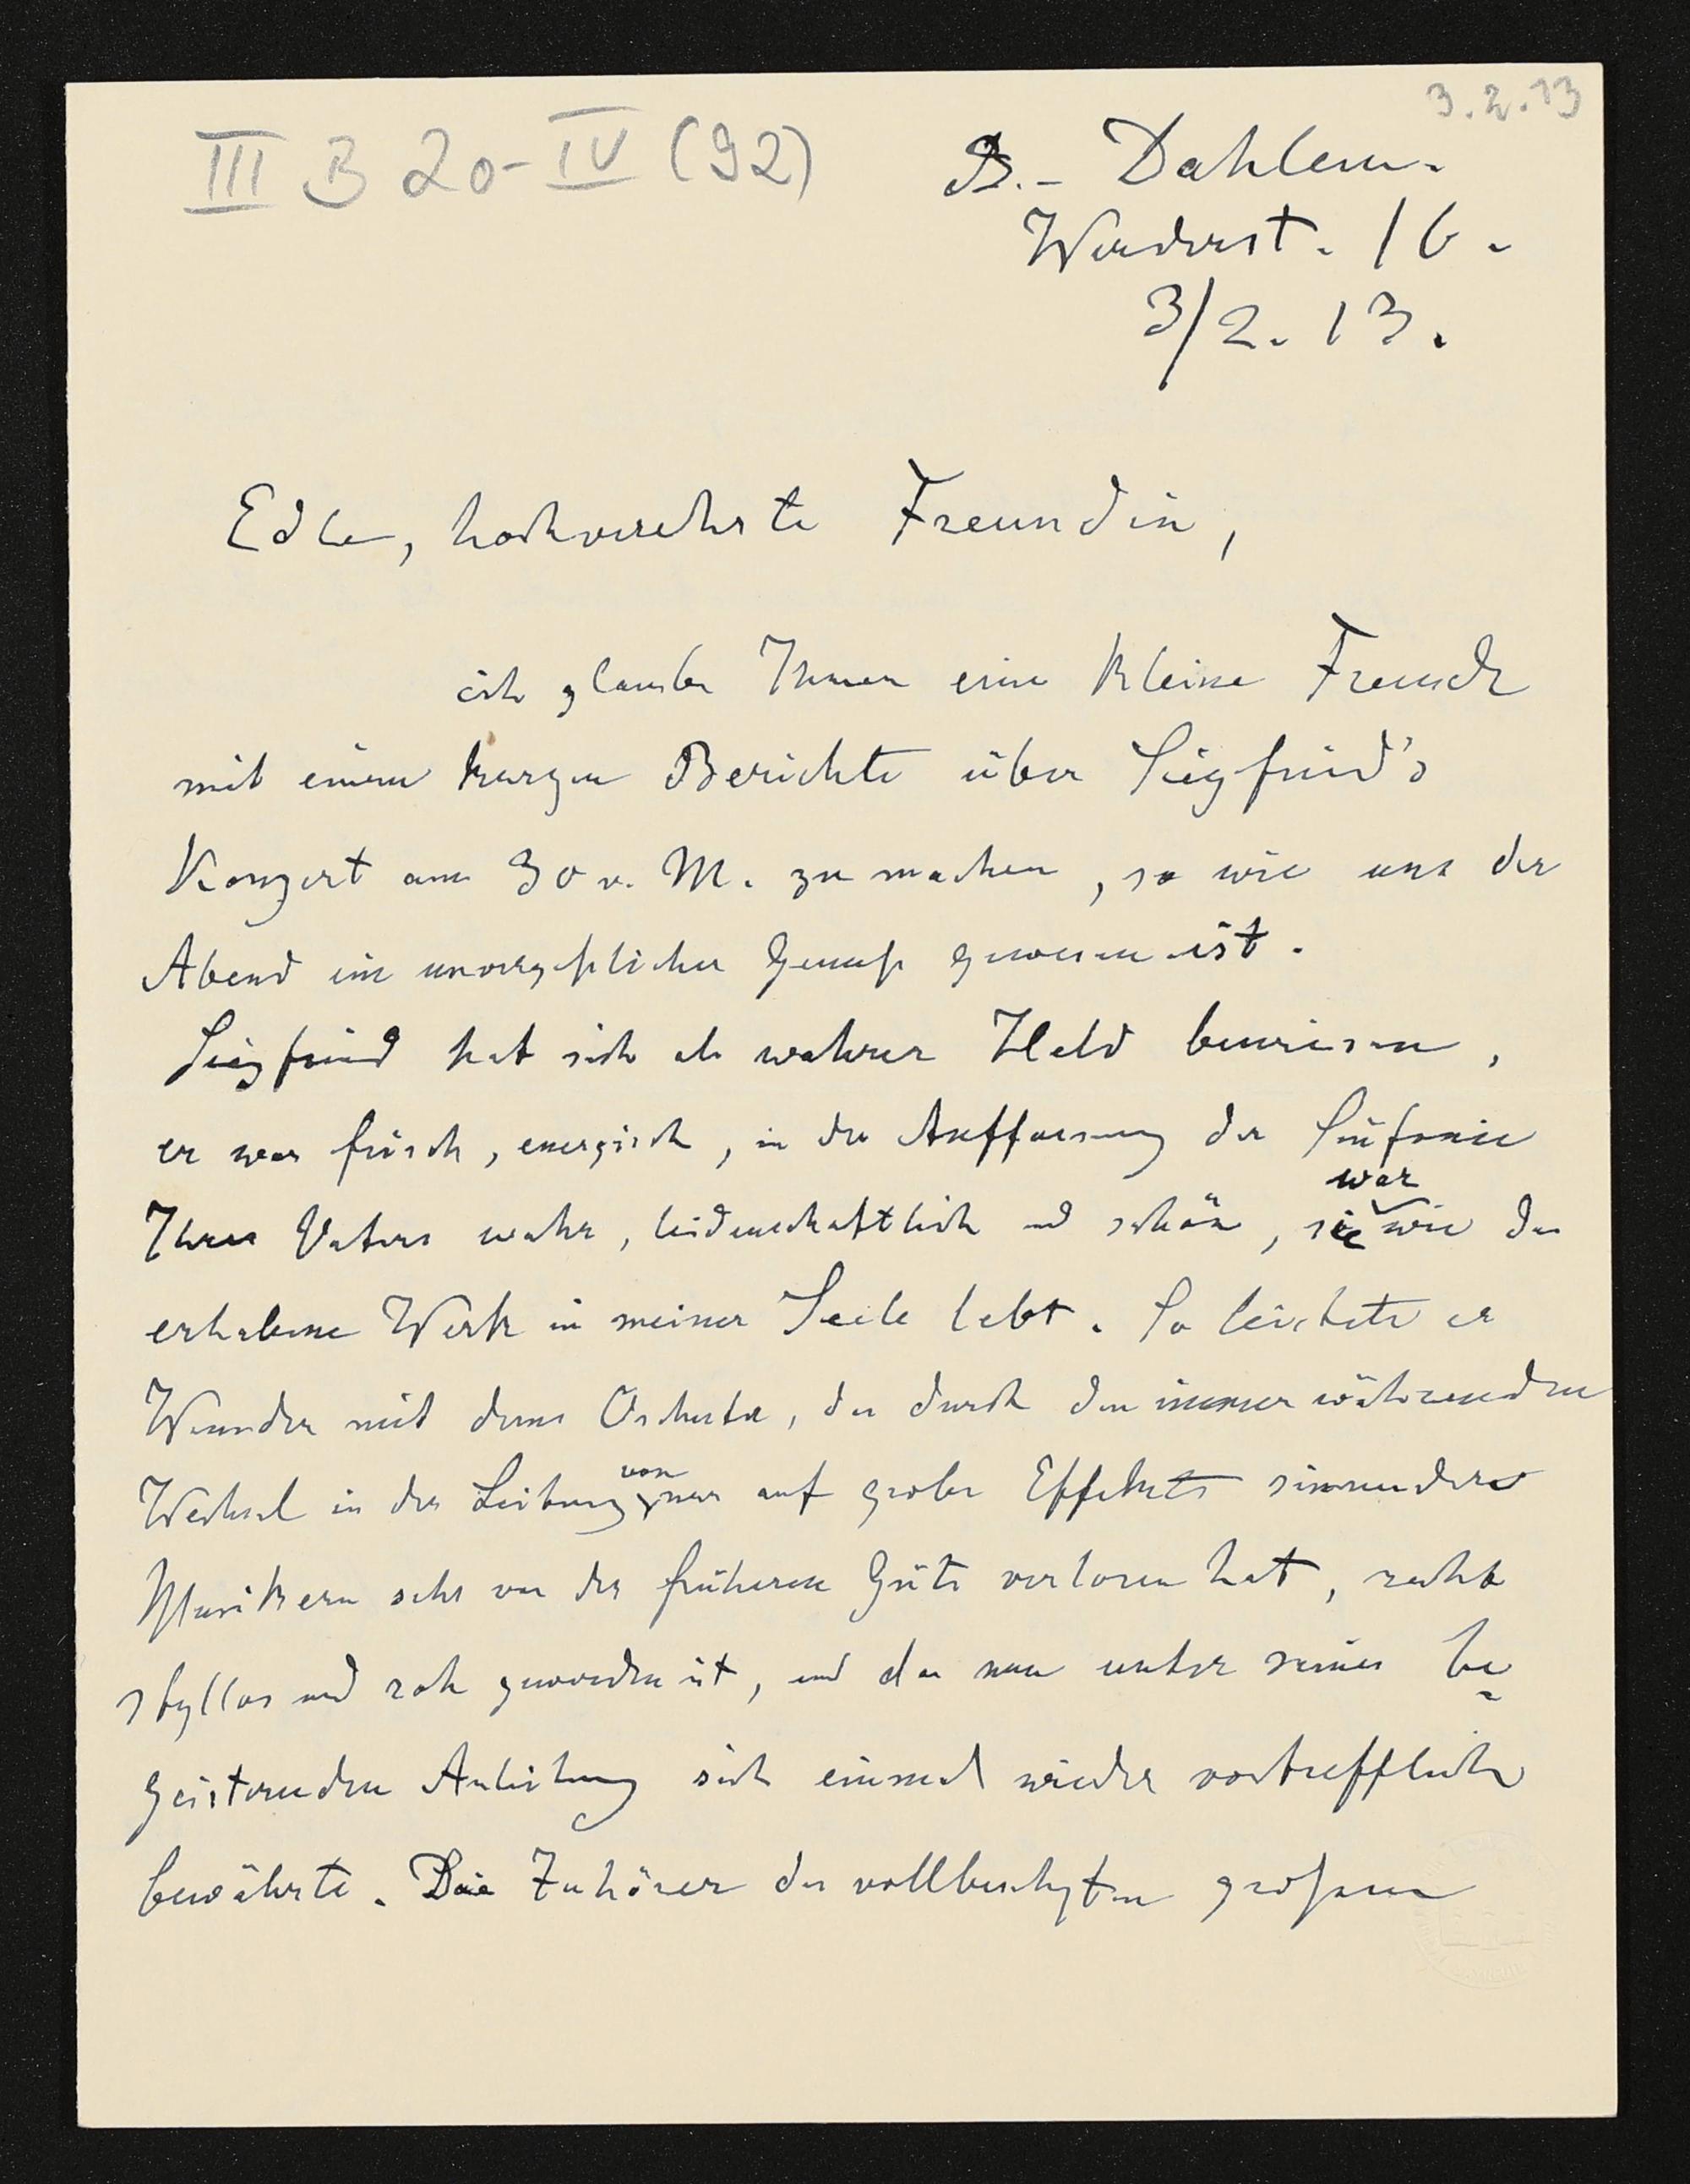 3.2.13
III B 20-IV (92)
B.- Dahlem.
Werderst. 16.
3/2. 13.
Edle, hochverehrte Freundin,
ich glaube Ihnen eine kleine Freude
mit einem kurzen Berichte über Siegfried's
Konzert am 30 v. M. zu machen, so wie uns der
Abend ein unvergeßlicher Genuß gewesen ist.
Siegfried hat sich als wahrer Held bewiesen,
er war frisch, energisch, in der Auffassung der Sinfonie
Ihres Vaters wahr, leidenschaftlich und schön, sie war wie das
erhabene Werk in meiner Seele lebt. So leistete er
Wunder mit dem Orchester, das durch den immerwährenden
Wechsel in der Leitung von nur auf grobe Effekte sinnender
Musikern sehr von der früheren Güte verloren hat, recht
styllos und roh geworden ist, und das nun unter seiner be
geisternden Anleitung sich einmal wieder vortrefflich
bewährte. Die Zuhörer des vollbesetzten großen